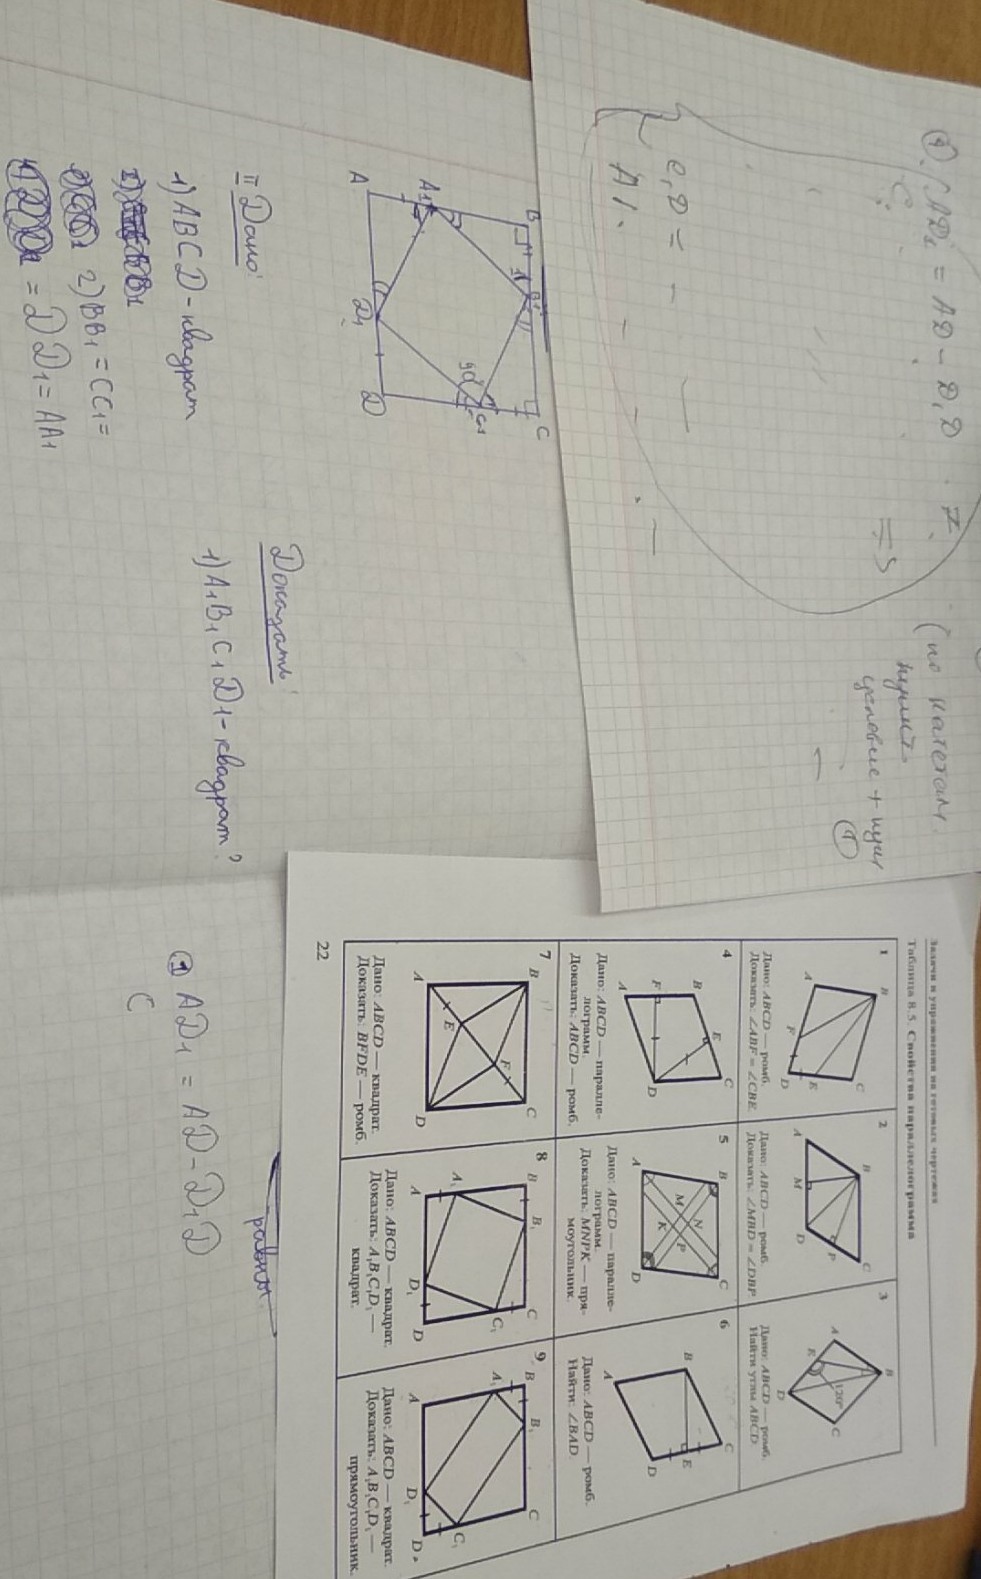 ② AD₁ = AD - D₁D
C₁
C₁D =
A₁
=>
(по катетам.
условие + один
①
B
B₁
C
A₁
C₁
90°
A
D₁
D
II Дано:
1) ABCD - квадрат
2) BB₁ = CC₁ =
= DD₁ = AA₁
Доказать:
1) A₁B₁C₁D₁ - квадрат?
① AD₁ = AD - D₁D
C
равны.
Задачи и упражнения на готовых чертежах
Таблица 8.5. Свойства параллелограмма
1
B
C
A
F
E
D
Дано: ABCD — ромб.
Доказать: ∠ABF = ∠CBE
2
B
C
A
M
D
P
Дано: ABCD — ромб.
Доказать: ∠MBD = ∠DBP
3
B
A
120°
C
E
D
Дано: ABCD — ромб.
Найти углы ABCD
4
B
E
C
F
A
D
Дано: ABCD — паралле-
лограмм.
Доказать: ABCD — ромб.
5
B
C
N
M
P
K
A
D
Дано: ABCD — паралле-
лограмм.
Доказать: MNPK — пря-
моугольник.
6
B
C
E
A
D
Дано: ABCD — ромб.
Найти: ∠BAD.
7
B
C
F
E
A
D
Дано: ABCD — квадрат.
Доказать: BFDE — ромб.
8
B
B₁
C
A₁
C₁
A
D₁
D
Дано: ABCD — квадрат.
Доказать: A₁B₁C₁D₁ —
квадрат.
9
B
B₁
C
A₁
C₁
A
D₁
D
Дано: ABCD — квадрат.
Доказать: A₁B₁C₁D₁ —
прямоугольник.
22